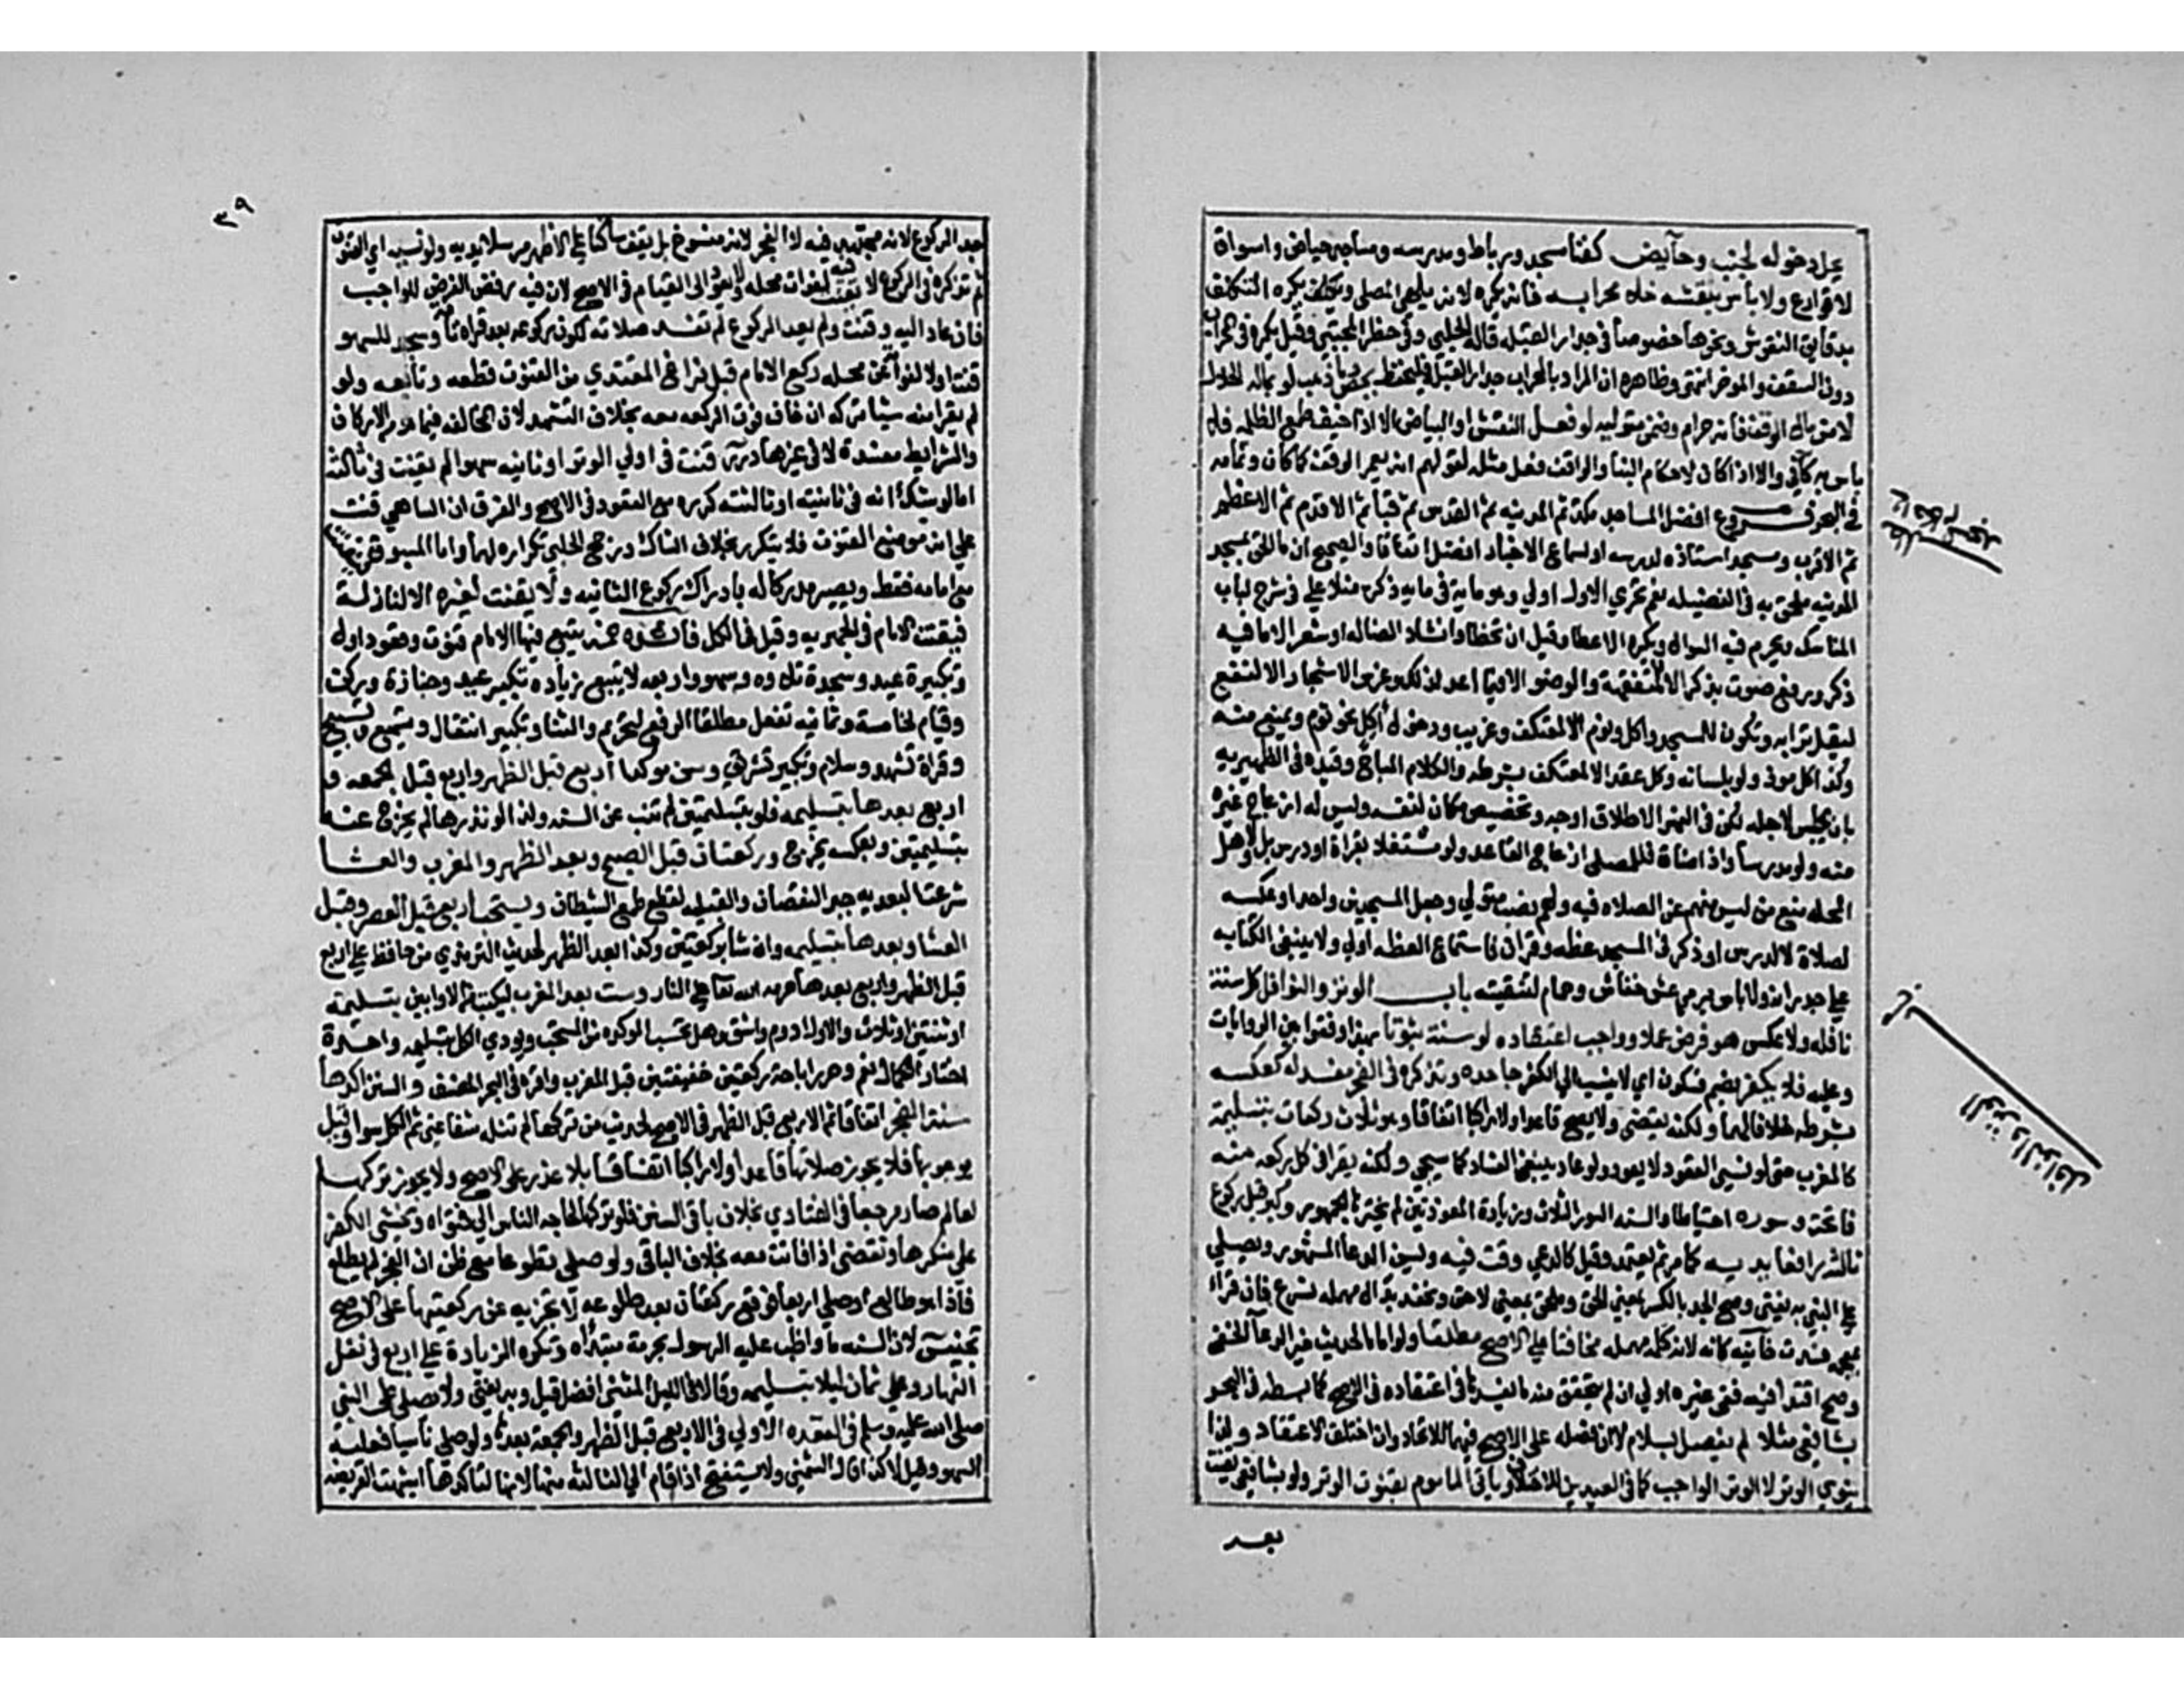 يحل دخوله لجنب وحايض كفنا مسجد ورباط ومدرسه ومساجد حياض واسواق
لا قوارع ولا باس بنقشه خلا محرابه فانه يكره لانه يلهي المصلي ويكره التكلف
بدقايق النقوش ونحوها خصوصا في جدار القبله قاله الحلبي وفي حظر المجتبي وقيل يكره في المحراب
دون السقف والموخر انتهي وظاهره ان المراد بالمحراب جدار القبله فليحفظ بجص وماء ذهب لو بماله الحلال
لا من مال الوقف فانه حرام وضمن متوليه لو فعل النقش او البياض الا اذا خيف طمع الظلمه فلا
باس به كافي والا اذا كان لاحكام البنا والواقف فعل مثله لقولهم انه يعمر الوقف كما كان وتمامه
في البحر فروع افضل المساجد مكة ثم المدينه ثم القدس ثم قبا ثم الاقدم ثم الاعظم
ثم الاقرب ومسجد استاذه لدرسه او لسماع الاخبار افضل اتفاقا والصحيح ان ما الحق بمسجد
المدينه ملحق به في الفضيله نعم تحري الاول اولي وهو مايه في مايه ذكره منلا علي في شرح لباب
المناسك ويحرم فيه السوال ويكره الاعطا وقيل ان تخطا وانشاد الضاله او شعر الا ما فيه
ذكر ورفع صوت بذكر الا للمتفقهة والوضو الا فيما اعد لذلك وغرس الاشجار الا لنفع
ليقل نزا به وتكون للمسجد واكل ونوم الا لمعتكف وغريب ودخول اكل نحو ثوم ويمنع منه
وكذا كل موذ ولو بلسانه وكل عقد الا لمعتكف بشرطه والكلام المباح وقيده في الظهيريه
بان يجلس لاجله لكن في النهر الاطلاق اوجه وتخصيص مكان لنفسه وليس له ازعاج غيره
منه ولو مدرسا واذا ضاق فللمصلي ازعاج القاعد ولو مشتغلا بقراة او درس بل ولاهل
المحله منع من ليس منهم عن الصلاه فيه ولهم نصب متولي وجعل المسجدين واحدا وعكسه
لصلاة لا لدرس او ذكر في المسجد عظه وقران فاستماع العظه اولي ولا ينبغي الكتابه
علي جدرانه ولا باس برمي عش خفاش وحمام لتنقيته باب الوتر والنوافل كل سنة
نافله ولا عكس هو فرض عملا وواجب اعتقاده لو سنة ثبوتا بهذا وفقوا بين الروايات
وعليه فلا يكفر بضم فسكون اي لا ينسب الي الكفر جاحده وتذكره في الفجر مفسد له كعكسه
بشرطه خلافا لهما ولكنه يقضي ولا يصح قاعدا ولا راكبا اتفاقا وهو ثلاث ركعات بتسليمة
كالمغرب حتي لو نسي القعود لا يعود ولو عاد ينبغي الفساد كما سيجي ولكنه يقرا في كل ركعه منه
فاتحة وسوره احتياطا والسنه السور الثلاث وزيادة المعوذتين لم يخترها الجمهور وكبر قبل ركوع
ثالثه رافعا يديه كما مر ثم يعتمد وقيل كالداعي وقنت فيه وليس الدعا المشهور ويصلي
علي النبي به يفتي وصح الجد بالكسر بمعني الحق وملحق بمعني لاحق ونحفد بدال مهمله نسرع فان قراء
بمعجمه فسدت خانيه كانه لانه كلمه مهمله مخافتا علي الاصح مطلقا ولو اماما لحديث خير الدعا الخفي
وصح اقتدا فيه ففي غيره اولي ان لم يتحقق منه ما يفسدها في اعتقاده في الاصح كما بسطه في البحر
بشافعي مثلا لم يفصل بسلام لا ان فصله علي الاصح فيهما للاتحاد وان اختلف الاعتقاد ولذا
ينوي الوتر لا الوتر الواجب كما في العيدين للاختلاف وياتي الماموم بقنوت الوتر ولو بشافعي يقنت
بعد
الوتر والنوافل
٣٩
بعد الركوع لانه مجتهد فيه لا الفجر لانه منسوخ بل يقف ساكتا علي الاظهر مرسلا يديه ولو نسيه اي القنوت
ثم تذكره في الركوع لا يقنت فيه لفوات محله ولا يعود الي القيام في الاصح لان فيه رفض الفرض للواجب
فان عاد اليه وقنت ولم يعد الركوع لم تفسد صلاته لكون ركوعه بعد قراه تامه وسجد للسهو
قنت اولا لزواله عن محله ركع الامام قبل فراغ المقتدي من القنوت قطعه وتابعه ولو
لم يقرا منه شيا تركه ان خاف فوت الركعه معه بخلاف التشهد لان المخالفه فيما هو من الاركان
والشرايط مفسدة لا في غيرها درر قنت في اولي الوتر او ثانيه سهوا لم يقنت في ثالثته
اما لو شك انه في ثانيته او ثالثته كرره مع القعود في الاصح والفرق ان الساهي قنت
علي انه موضع القنوت فلا يتكرر بخلاف الشاك ورجح الحلبي تكراره لهما واما المسبوق فيقنت
مع امامه فقط ويصير مدركا له بادراك ركوع الثانيه ولا يقنت لغيره الا لنازلة
فيقنت الامام في الجهريه وقيل في الكل فائده خمسه يتبع فيها الامام قنوت وقعود اول
وتكبيرة عيد وسجدة تلاوه وسهو واربعه لا يتبع زياده تكبير عيد وجنازة وركن
وقيام لخامسة وثمانيه تفعل مطلقا الرفع لتحريم والثنا وتكبير انتقال وتسميع وتسبيح
وقراة تشهد وسلام وتكبير تشريق وسن موكدا اربع قبل الظهر واربع قبل الجمعه و
اربع بعدها بتسليمه فلو بتسليمتين لم تنب عن السنه ولذا لو نذرها لم يخرج عنه
بتسليمتين وبعكسه يخرج وركعتان قبل الصبح وبعد الظهر والمغرب والعشا
شرعتا لبعديه جبر النقصان والقبليه لقطع طمع الشيطان ويستحب اربع قبل العصر وقبل
العشا وبعدها بتسليمه وان شا ركعتين وكذا بعد الظهر لحديث الترمذي من حافظ علي اربع
قبل الظهر واربع بعدها حرمه الله تعالي علي النار وست بعد المغرب ليكتب من الاوابين بتسليمة
او ثنتين او ثلاث والاول ادوم واشق وهل تحسب الموكده من المستحب ويودي الكل بتسليمه واحدة
اختار الكمال نعم وحرر اباحة ركعتين خفيفتين قبل المغرب واقره في البحر المصنف والسنن اكدها
سنة الفجر اتفاقا ثم الاربع قبل الظهر في الاصح لحديث من تركها لم تنله شفاعتي ثم الكل سوا وقيل
بوجوبها فلا يجوز صلاتها قاعدا ولا راكبا اتفاقا بلا عذر علي الاصح ولا يجوز تركها
لعالم صار مرجعا في الفتاوي بخلاف باقي السنن فله تركها لحاجه الناس الي فتواه ويخشي الكفر
علي منكرها وتقضي اذا فاتت معه بخلاف الباقي ولو صلي تطوعا مع ظن ان الفجر لم يطلع
فاذا هو طالع او صلي اربعا فوقع ركعتان بعد طلوعه لا تجزيه عن ركعتيها علي الاصح
تجنيس لان السنه ما واظب عليه الرسول بحرمة مبتدأه وتكره الزيادة علي اربع في نفل
النهار وعلي ثمان ليلا بتسليمه وقالا في الليل المثني افضل قيل وبه يفتي ولا يصلي علي النبي
صلي الله عليه وسلم في القعده الاولي في الاربع قبل الظهر والجمعة بعدها ولو صلي ناسيا فعليه
السهو وقيل لا كذا قال الشمني ولا يستفتح اذا قام الي الثالثه منها لانها لتاكدها اشبهت الفريضه